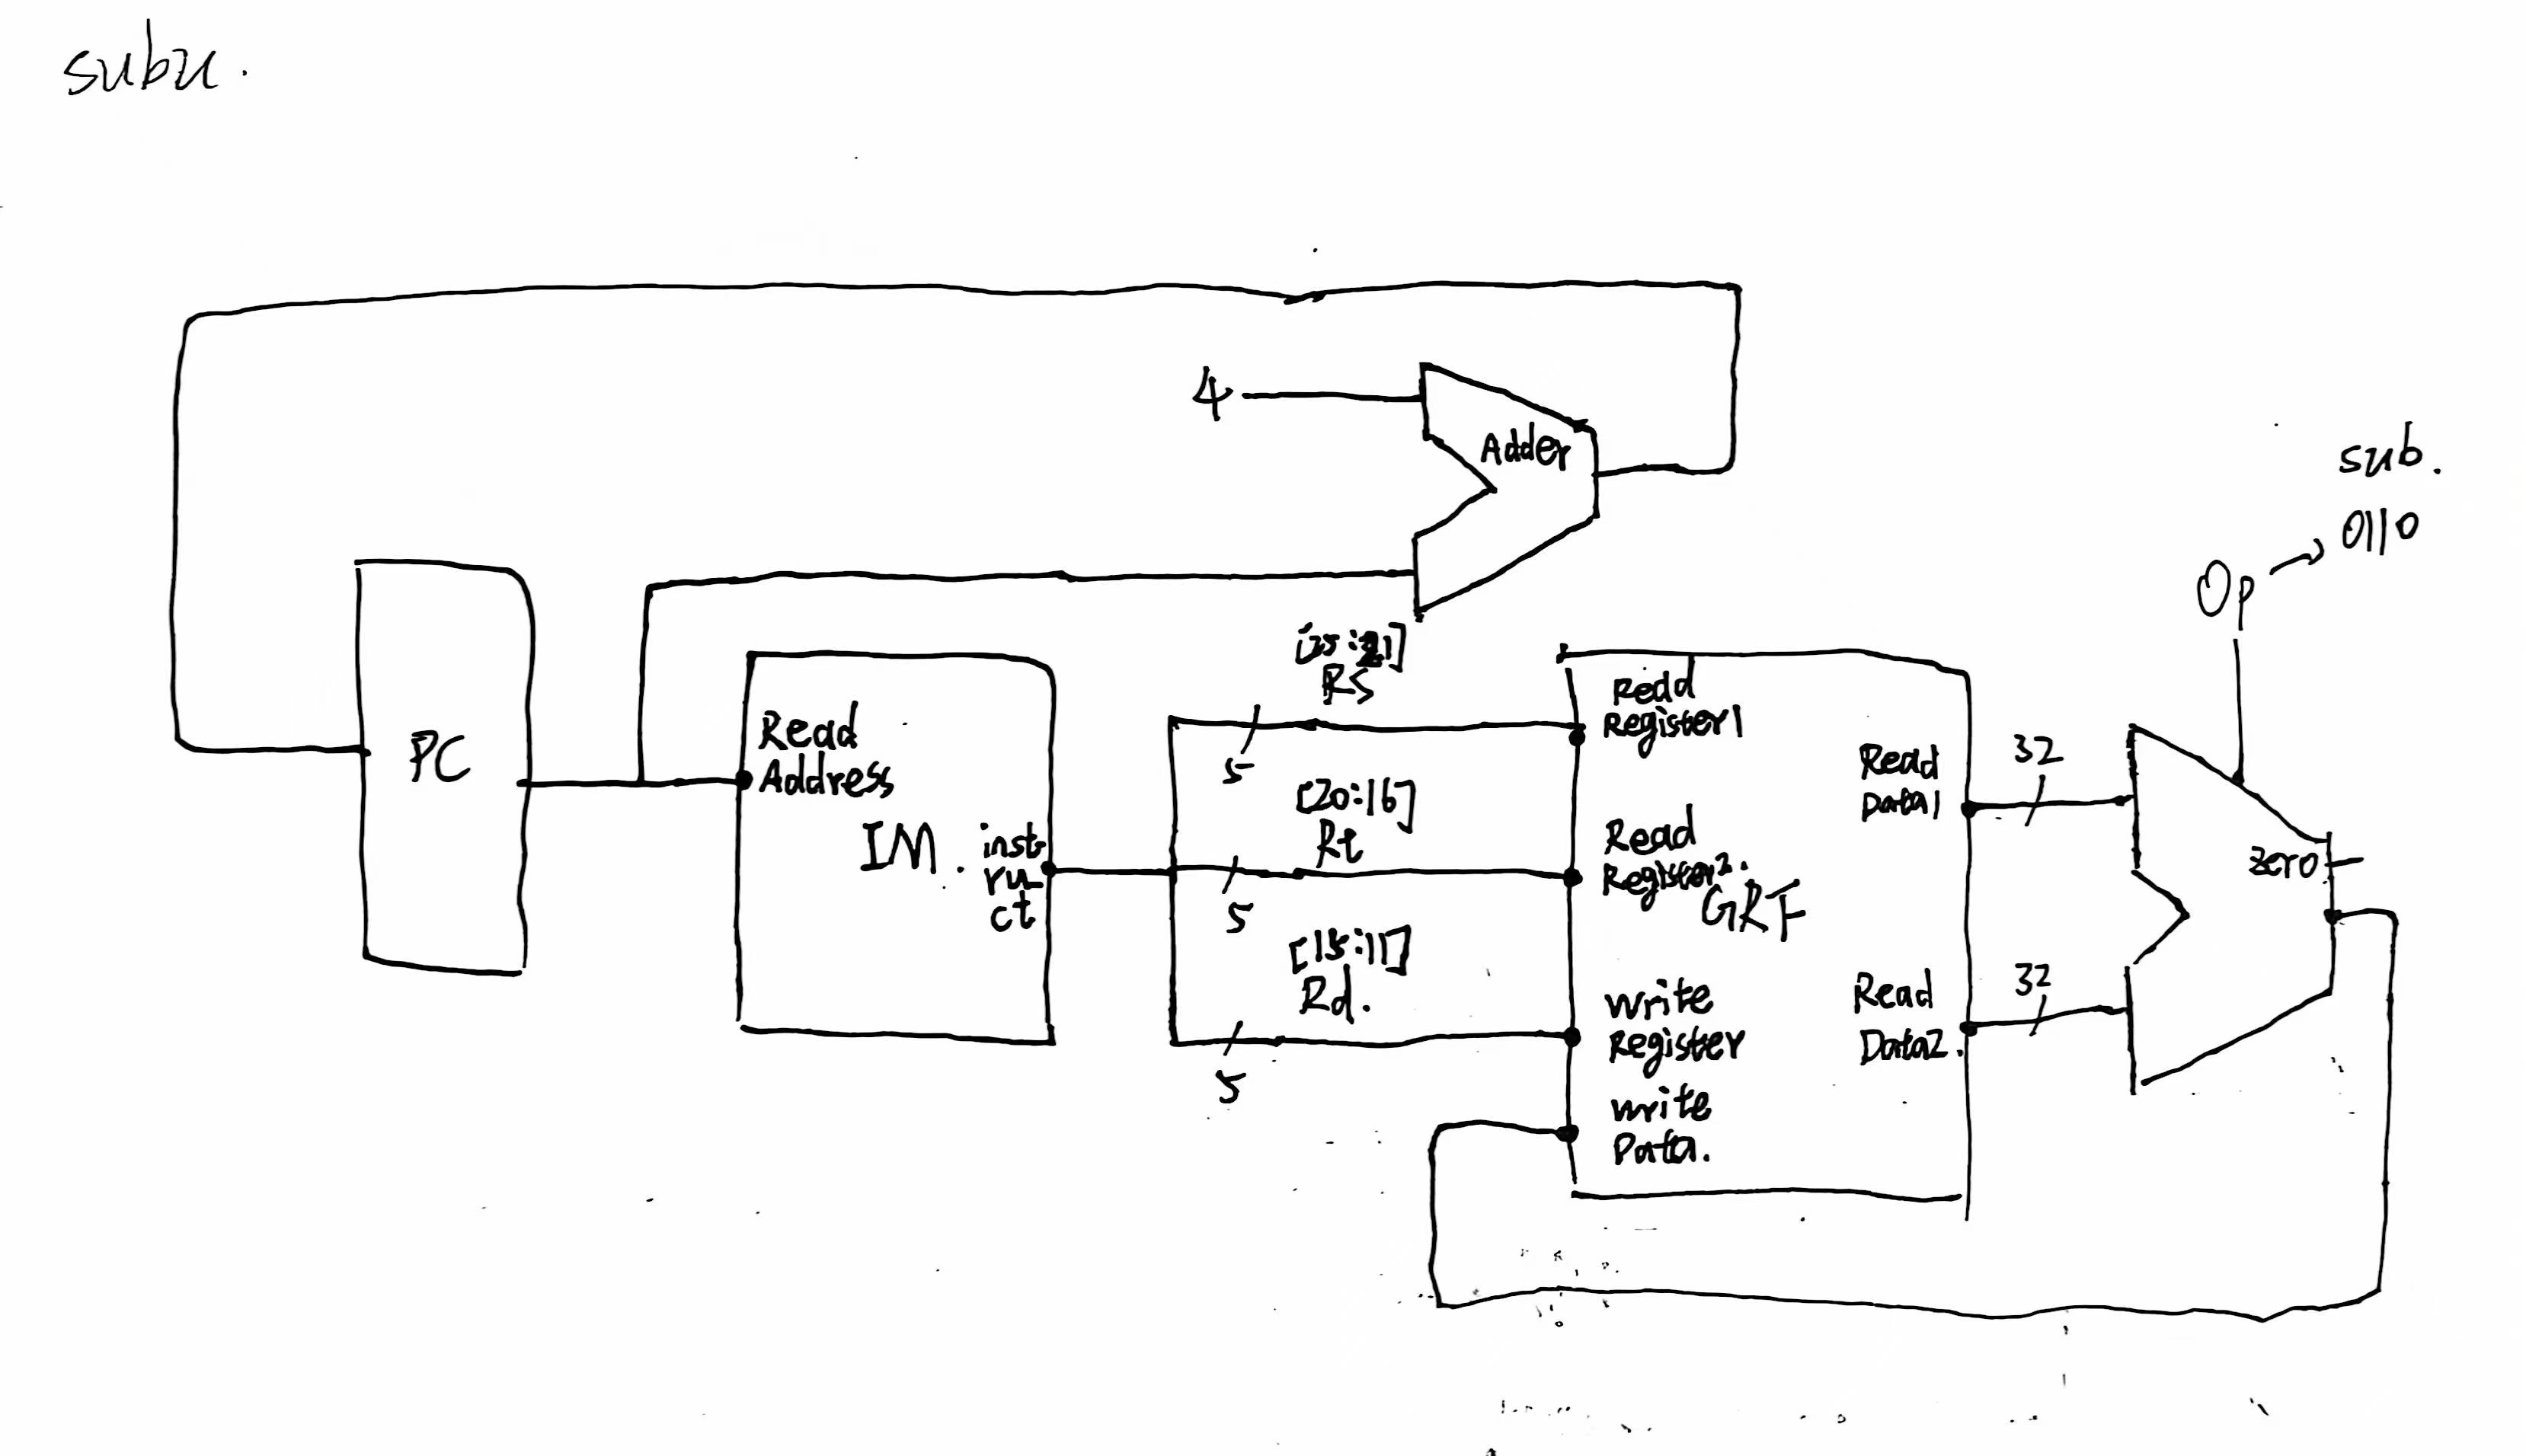 subu.
4
Adder
sub.
0110
Op
[25:21]
Rs
PC
Read
Address
IM.
inst
ru
ct
5
[20:16]
Rt
5
[15:11]
Rd.
5
Read
Register1
Read
Register2.
GRF
Write
Register
Write
Data.
Read
Data1
Read
Data2.
32
32
zero